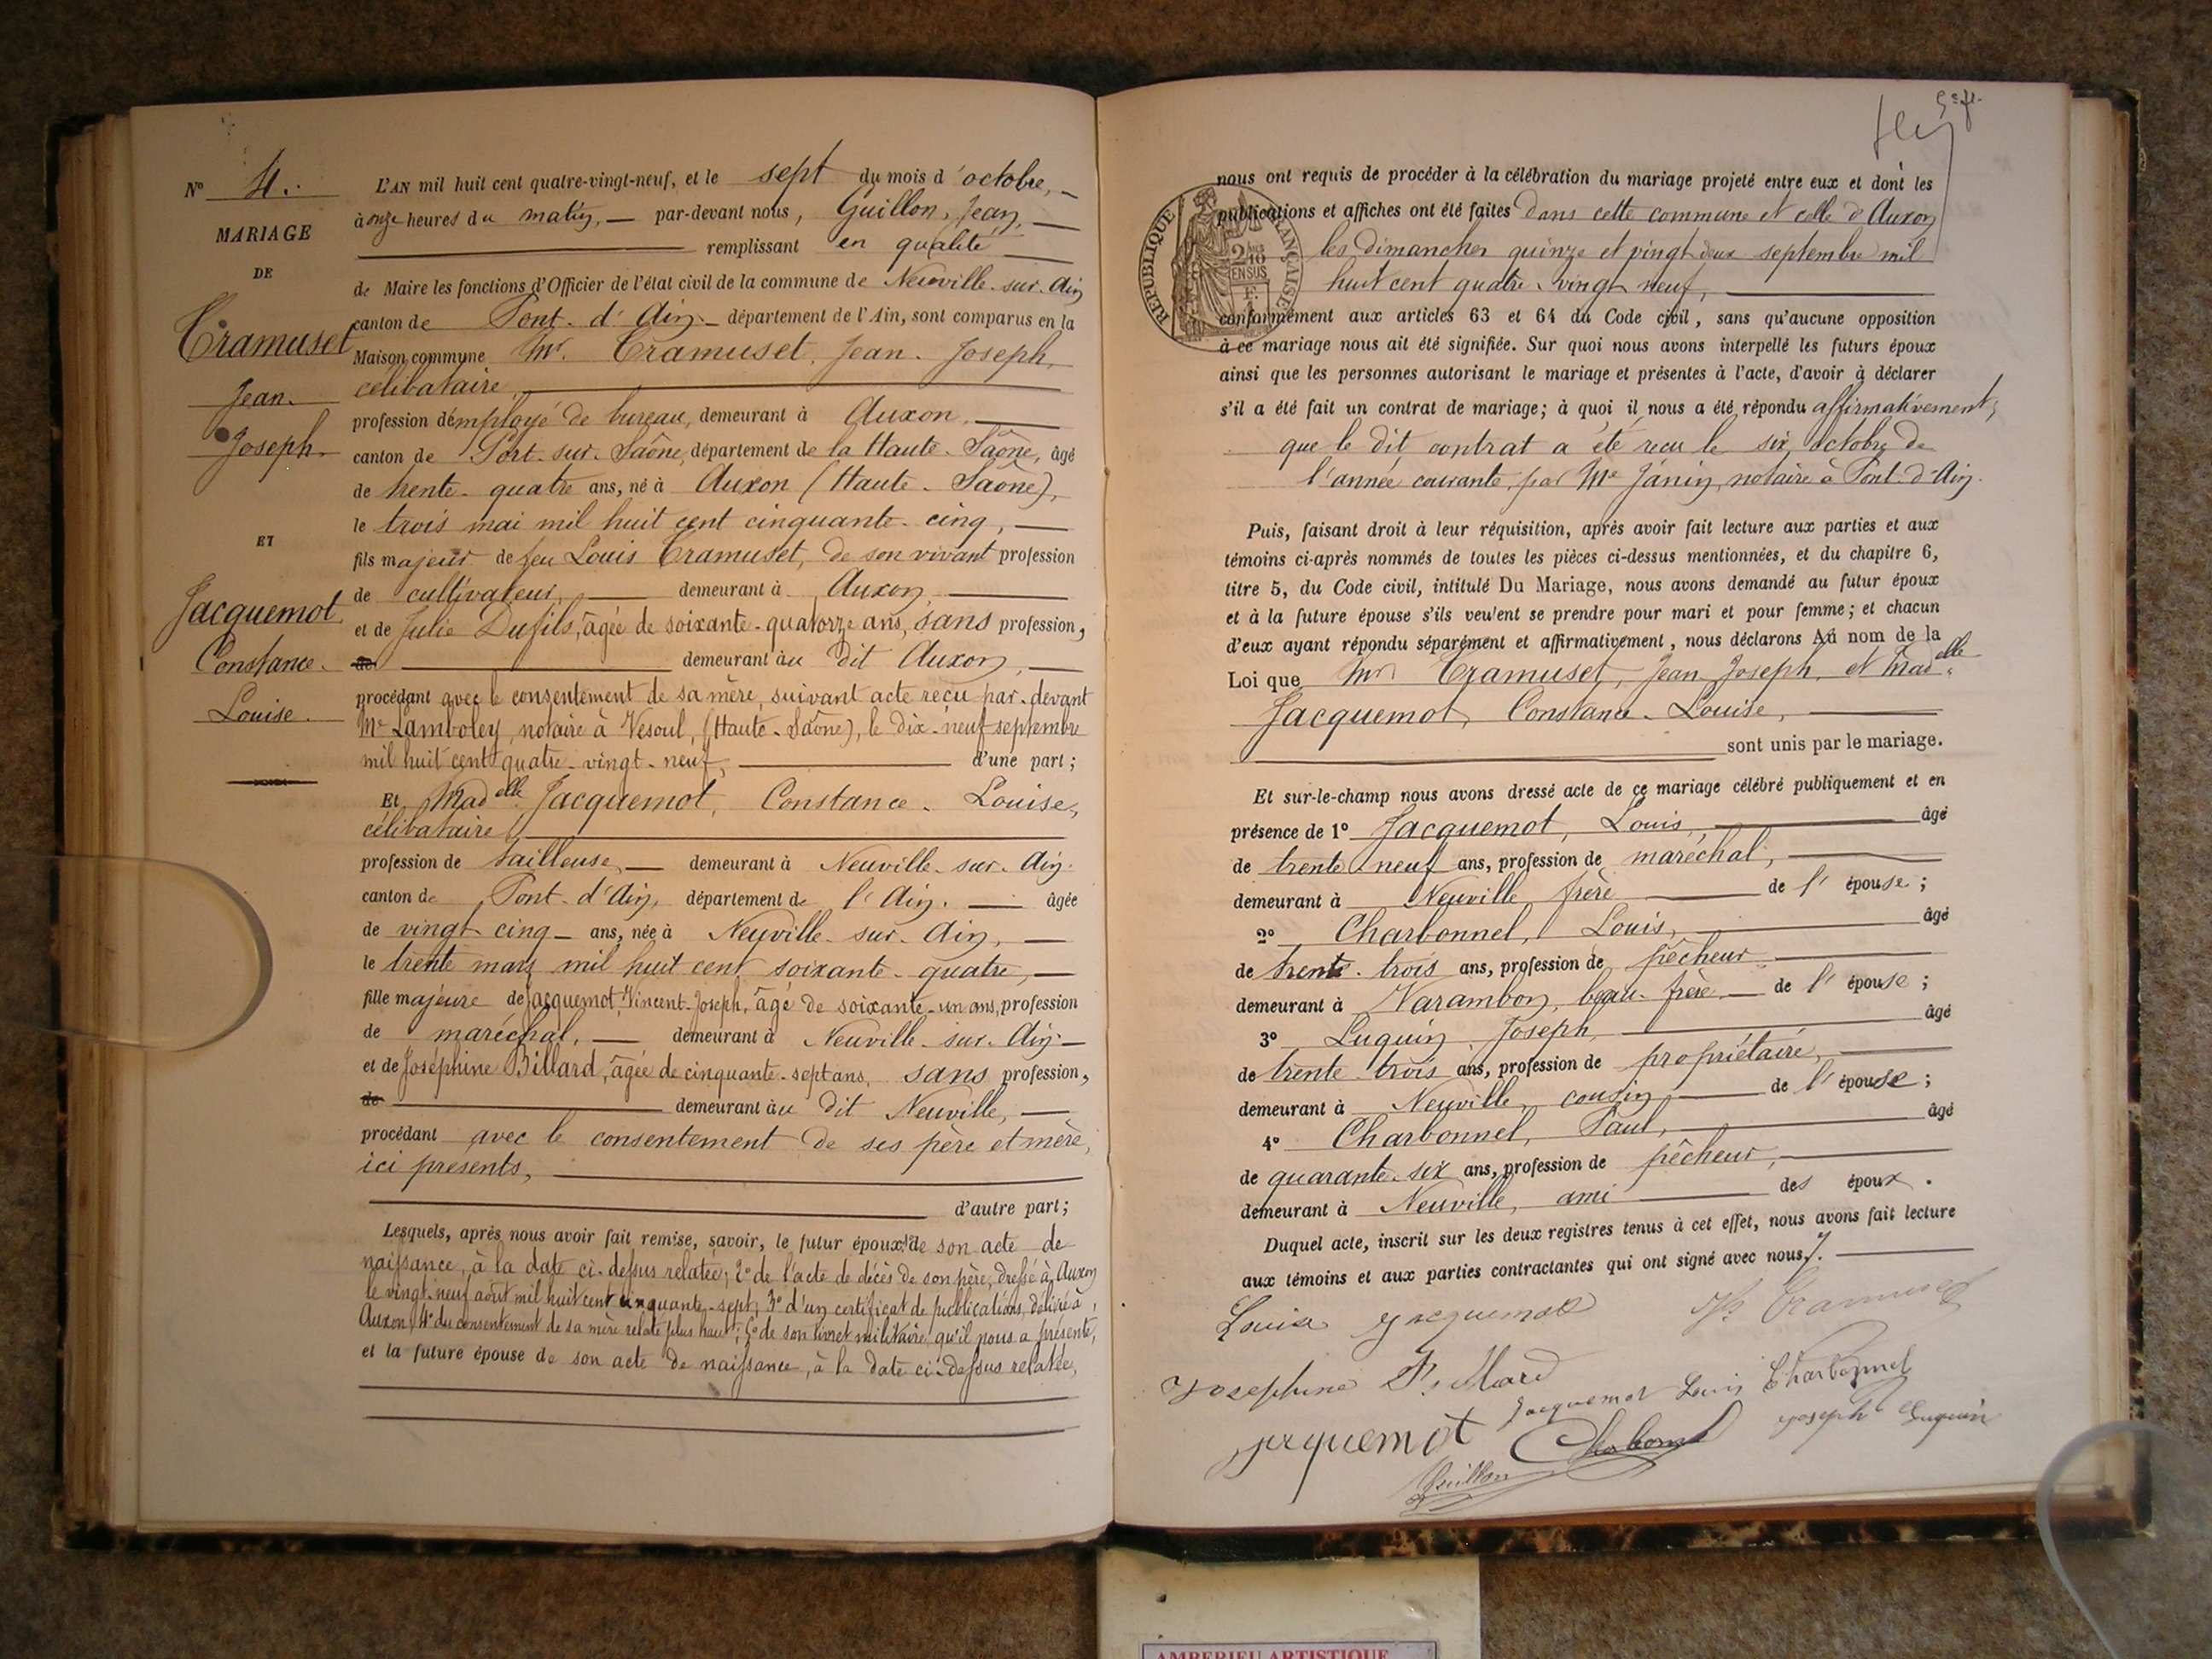 N° 4.
MARIAGE
DE
Tramuset
Jean.
Joseph.
ET
Jacquemot
Constance.
Louise.
L'AN mil huit cent quatre-vingt-neuf, et le sept du mois d'octobre,
à onze heures du matin, par-devant nous, Guillon, Jean,
remplissant en qualité
de Maire les fonctions d'Officier de l'état civil de la commune de Neuville-sur-Ain
canton de Pont-d'Ain département de l'Ain, sont comparus en la
Maison commune Mr. Tramuset, Jean-Joseph,
célibataire,
profession d'employé de bureau, demeurant à Auxon,
canton de Port-sur-Saône, département de la Haute-Saône, âgé
de trente-quatre ans, né à Auxon (Haute-Saône),
le trois mai mil huit cent cinquante-cinq,
fils majeur de feu Louis Tramuset, de son vivant profession
de cultivateur, demeurant à Auxon,
et de Julie Dufils, âgée de soixante-quatorze ans, sans profession,
de demeurant au dit Auxon,
procédant avec le consentement de sa mère, suivant acte reçu par-devant
Me Lamboley, notaire à Vesoul, (Haute-Saône), le dix-neuf septembre
mil huit cent quatre-vingt-neuf, d'une part;
Et Madelle Jacquemot, Constance-Louise,
célibataire,
profession de tailleuse, demeurant à Neuville-sur-Ain.
canton de Pont-d'Ain, département de l'Ain. âgée
de vingt cinq ans, née à Neuville-sur-Ain,
le trente mars mil huit cent soixante-quatre,
fille majeure de Jacquemot, Vincent-Joseph, âgé de soixante-un ans, profession
de maréchal, demeurant à Neuville-sur-Ain
et de Joséphine Billard, âgée de cinquante-sept ans, sans profession,
de demeurant au dit Neuville,
procédant avec le consentement de ses père et mère,
ici présents,
d'autre part;
Lesquels, après nous avoir fait remise, savoir, le futur époux 1° de son acte de
naissance, à la date ci-dessus relatée; 2° de l'acte de décès de son père, dressé à Auxon
le vingt-neuf août mil huit cent cinquante-sept; 3° d'un certificat de publications, délivré à
Auxon; 4° du consentement de sa mère relaté plus haut; 5° de son livret militaire qu'il nous a présenté,
et la future épouse de son acte de naissance, à la date ci-dessus relatée,
5e f.
RÉPUBLIQUE FRANÇAISE
2/10 EN SUS
nous ont requis de procéder à la célébration du mariage projeté entre eux et dont les
publications et affiches ont été faites dans cette commune et celle d'Auxon
les dimanches quinze et vingt deux septembre mil
huit cent quatre-vingt neuf,
conformément aux articles 63 et 64 du Code civil, sans qu'aucune opposition
à ce mariage nous ait été signifiée. Sur quoi nous avons interpellé les futurs époux
ainsi que les personnes autorisant le mariage et présentes à l'acte, d'avoir à déclarer
s'il a été fait un contrat de mariage; à quoi il nous a été répondu affirmativement,
que le dit contrat a été reçu le six octobre de
l'année courante, par Me Janin, notaire à Pont-d'Ain.
Puis, faisant droit à leur réquisition, après avoir fait lecture aux parties et aux
témoins ci-après nommés de toutes les pièces ci-dessus mentionnées, et du chapitre 6,
titre 5, du Code civil, intitulé Du Mariage, nous avons demandé au futur époux
et à la future épouse s'ils veulent se prendre pour mari et pour femme; et chacun
d'eux ayant répondu séparément et affirmativement, nous déclarons Au nom de la
Loi que Mr Tramuset, Jean Joseph, et Madelle
Jacquemot, Constance-Louise,
sont unis par le mariage.
Et sur-le-champ nous avons dressé acte de ce mariage célébré publiquement et en
présence de 1° Jacquemot, Louis, âgé
de trente neuf ans, profession de maréchal,
demeurant à Neuville frère de l'épouse;
2° Charbonnel, Louis, âgé
de trente-trois ans, profession de pêcheur
demeurant à Varambon, beau-frère de l'épouse;
3° Luquin, Joseph, âgé
de trente-trois ans, profession de propriétaire,
demeurant à Neuville, cousin, de l'épouse;
4° Charbonnel, Paul, âgé
de quarante-six ans, profession de pêcheur,
demeurant à Neuville, ami des époux.
Duquel acte, inscrit sur les deux registres tenus à cet effet, nous avons fait lecture
aux témoins et aux parties contractantes qui ont signé avec nous.
Louise Jacquemot Jh Tramuset
Josephine Billard Jacquemot Louis Charbonnel
Jacquemot Charbonnel Joseph Luquin
Guillon
AMBERIEU ARTISTIQUE